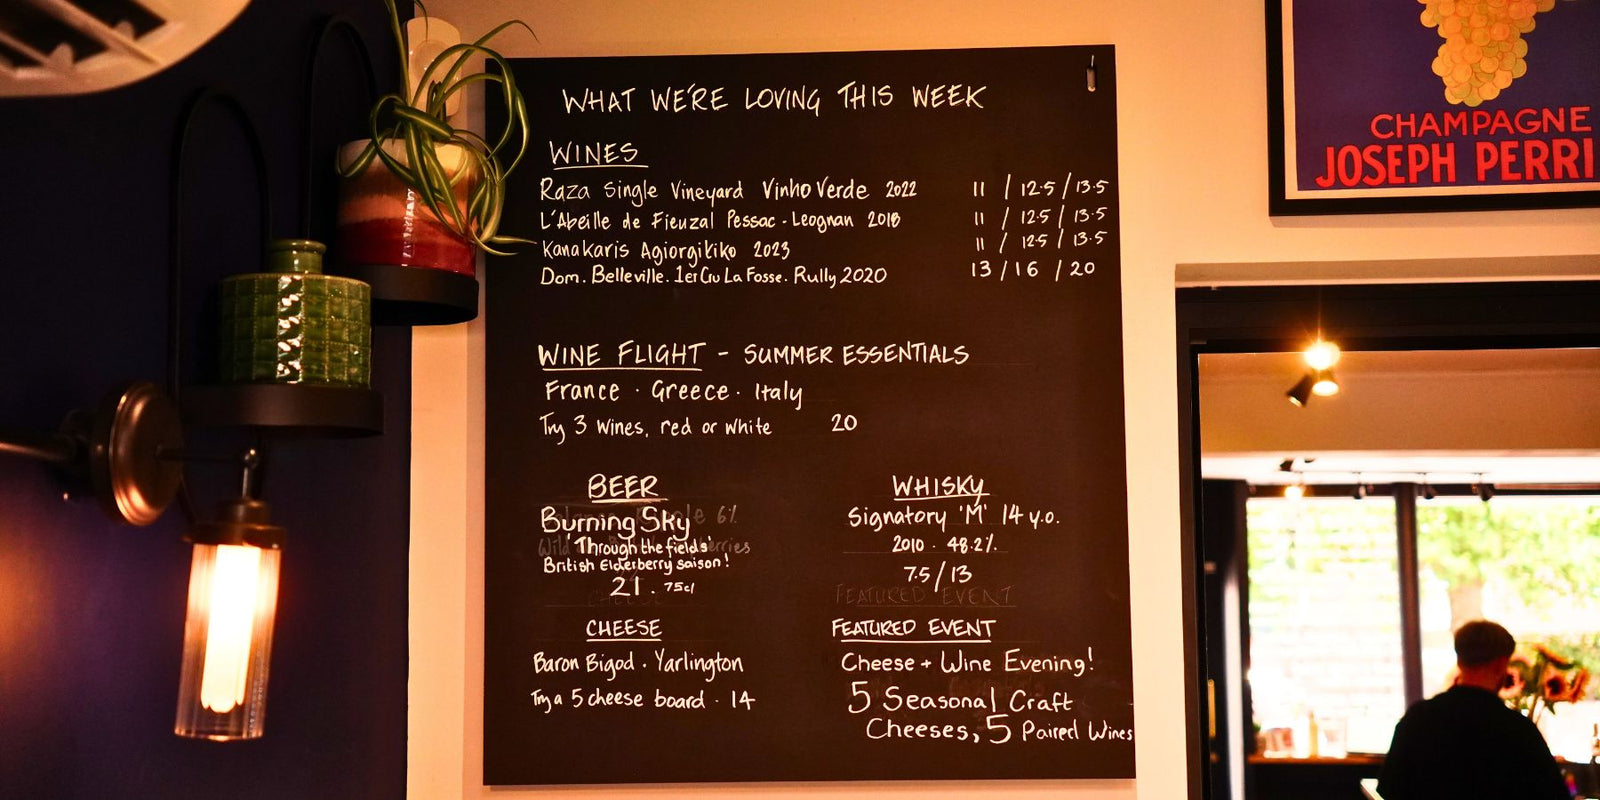 WHAT WE'RE LOVING THIS WEEK
WINES
Raza Single Vineyard Vinho Verde 2022 11 / 12.5 / 13.5
L'Abeille de Fieuzal Pessac-Leognan 2018 11 / 12.5 / 13.5
Kanakaris Agiorgitiko 2023 11 / 12.5 / 13.5
Dom. Belleville. 1er Cru La Fosse. Rully 2020 13 / 16 / 20
WINE FLIGHT - SUMMER ESSENTIALS
France · Greece · Italy
Try 3 wines, red or white 20
BEER
Burning Sky
'Through the fields'
British Elderberry saison!
21. 75cl
WHISKY
Signatory 'M' 14 y.o.
2010 · 48.2%.
7.5/13
FEATURED EVENT
CHEESE
Baron Bigod · Yarlington
Try a 5 cheese board · 14
FEATURED EVENT
Cheese + Wine Evening!
5 Seasonal Craft
Cheeses, 5 Paired Wines
CHAMPAGNE
JOSEPH PERRI